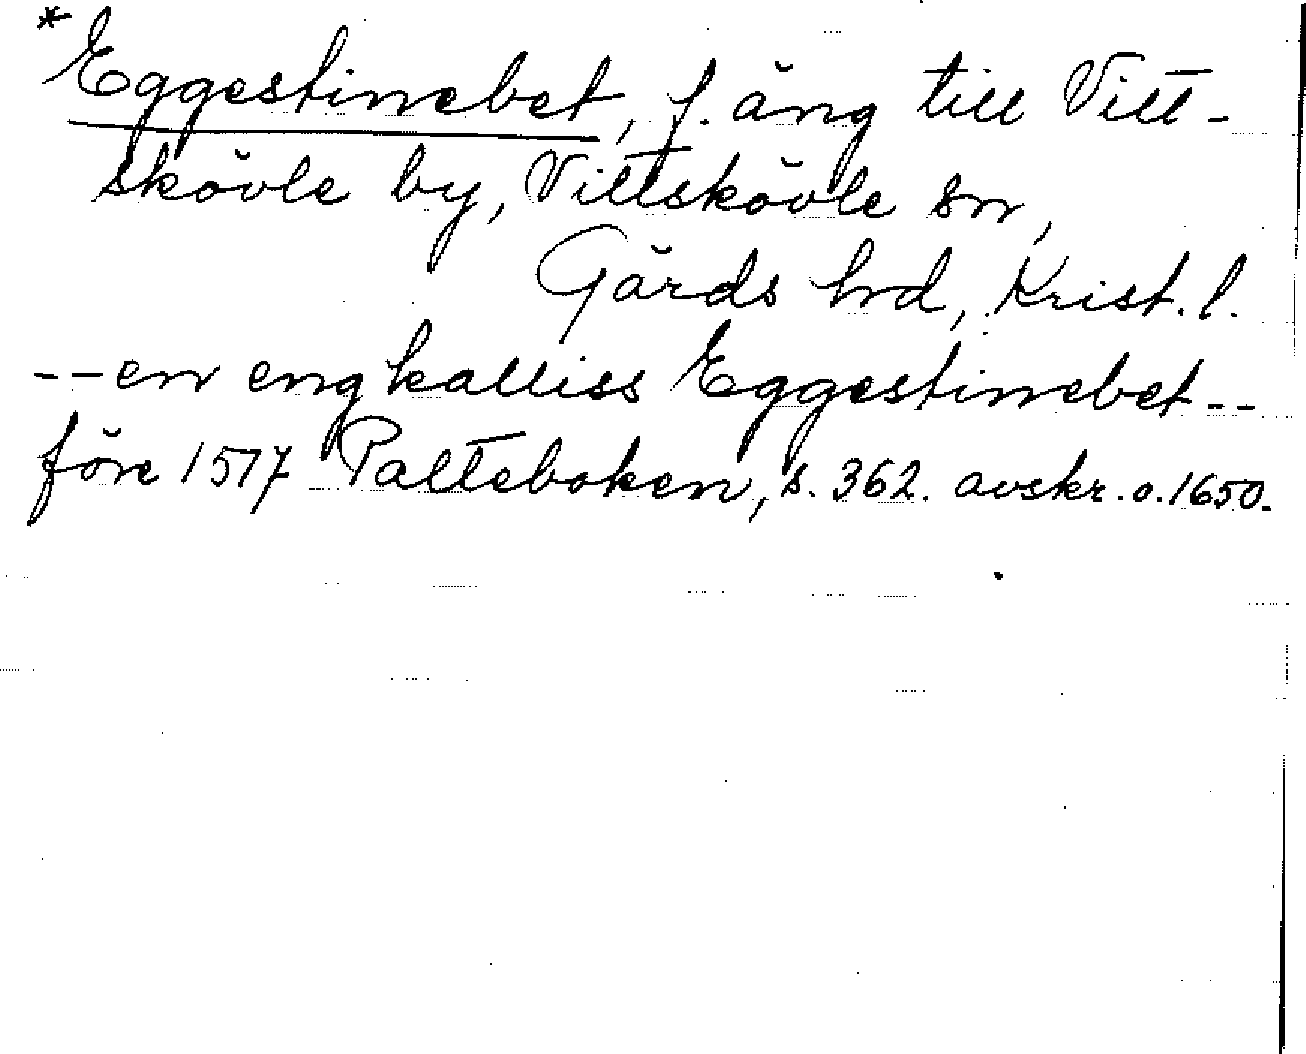 *Eggestinebet, f. äng till Vitt-
skövle by, Vittskövle sn,
Gärds hd, Krist. l.
--en eng kalliss Eggestinebet--
före 1577 Palteboken, s. 362. avskr. o. 1650.